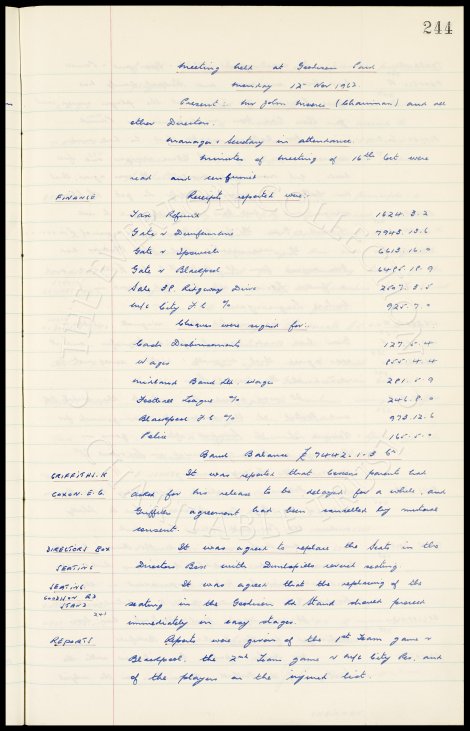 244
Meeting held at Goodison Park
Monday 12th Nov 1962
Present: Mr John Moores (Chairman) and all
other Directors.
Manager & Secretary in attendance.
Minutes of meeting of 16th Oct were
read and confirmed
FINANCE Receipts reported were:
Tax Refund 1624.3.2
Gate v Dunfermline 7943.13.6
Gate v Ipswich 6613.16.0
Gate v Blackpool 6495.19.9
Sale Ridgway Drive 2507.3.5
M/c City F.C. % 925.7.0
Cheques were signed for:
Cash Disbursements 127.5.4
Wages 855.4.4
Midland Bank Ltd. wages 291.5.9
Football League % 246.8.0
Blackpool F.C. % 973.12.6
Police 165.5.0
Bank Balance £7442.1.3
GRIFFITHS. K It was reported that parent had
COXON. E.G. asked for his release to be delayed for a while, and
Griffiths agreement had been cancelled by mutual
consent.
DIRECTORS BOX It was agreed to replace the Seats in the
SEATING Directors Box with Dunlopillo seating
SEATING It was agreed that the replacing of the
GOODISON RD seating in the Goodison Rd Stand should proceed
STAND immediately in easy stages.
241
REPORTS Reports were given of the 1st Team game v
Blackpool, the 2nd Team game v M/c City Res, and
of the players on the injured list.
THE EVERTON COLLECTION
CHARITABLE